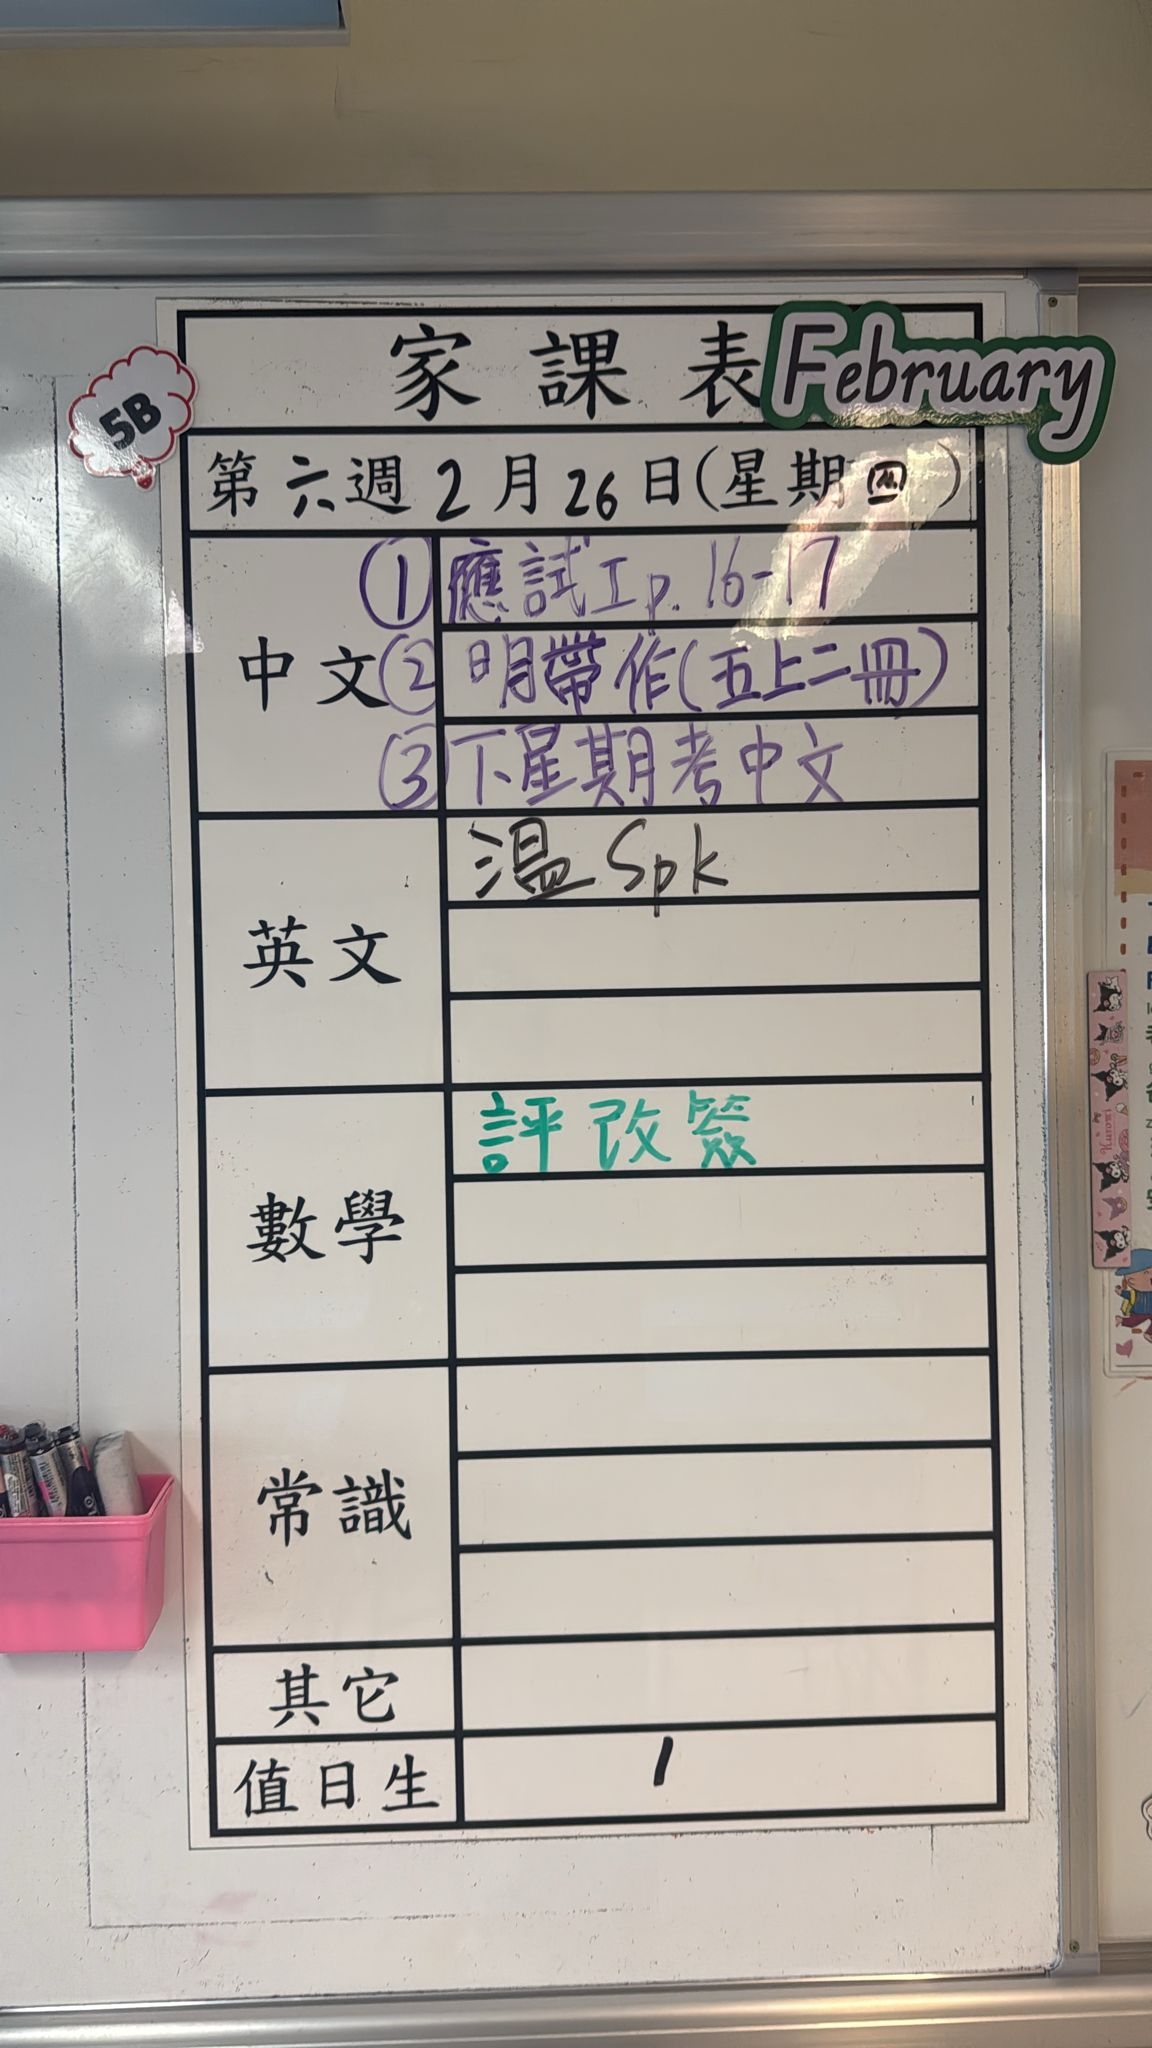 家課表
February
5B
第六週2月26日(星期四)
中文
①應試Ip.16-17
②明帶作(五上二冊)
③下星期考中文
英文
溫Spk
數學
評改簽
常識
其它
值日生
1